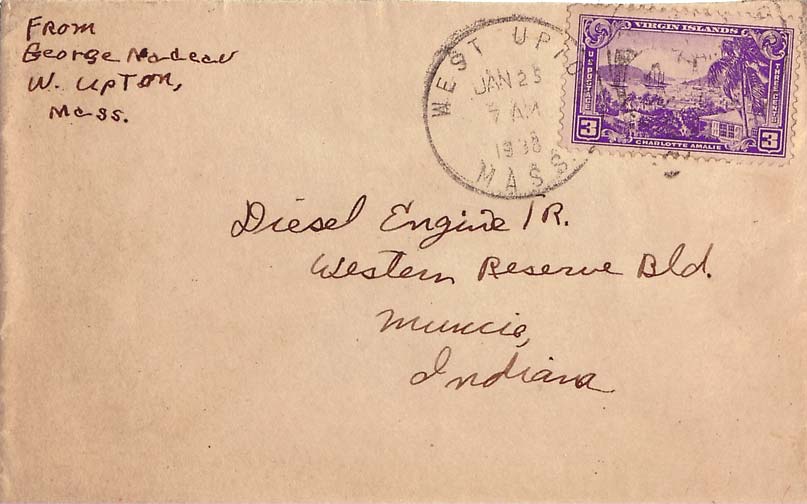 From
George Nadeau
W. Upton,
Mass.
WEST UPTO
JAN 25
7 AM
1938
MASS.
VIRGIN ISLANDS
U.S. POSTAGE
THREE CENTS
3
3
CHARLOTTE AMALIE
Diesel Engine TR.
Western Reserve Bld.
Muncie,
Indiana